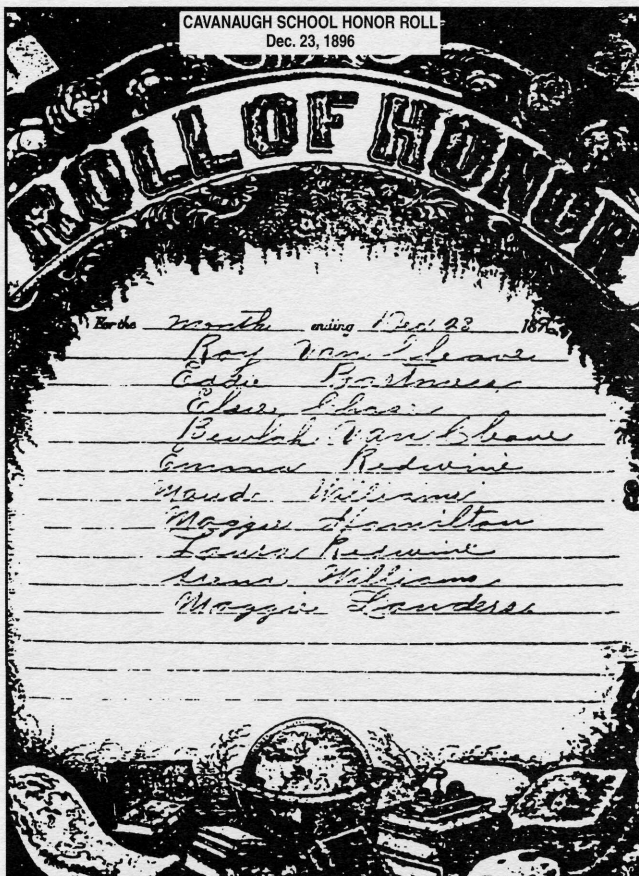 CAVANAUGH SCHOOL HONOR ROLL
Dec. 23, 1896
ROLL OF HONOR
For the month ending Dec 23 1896
Roy Van Cleave
Eddie
Elsie Chase
Beulah Van Cleave
Emma Redwine
Maud Williams
Maggie Hamilton
Laura Redwine
Williams
Maggie Landers